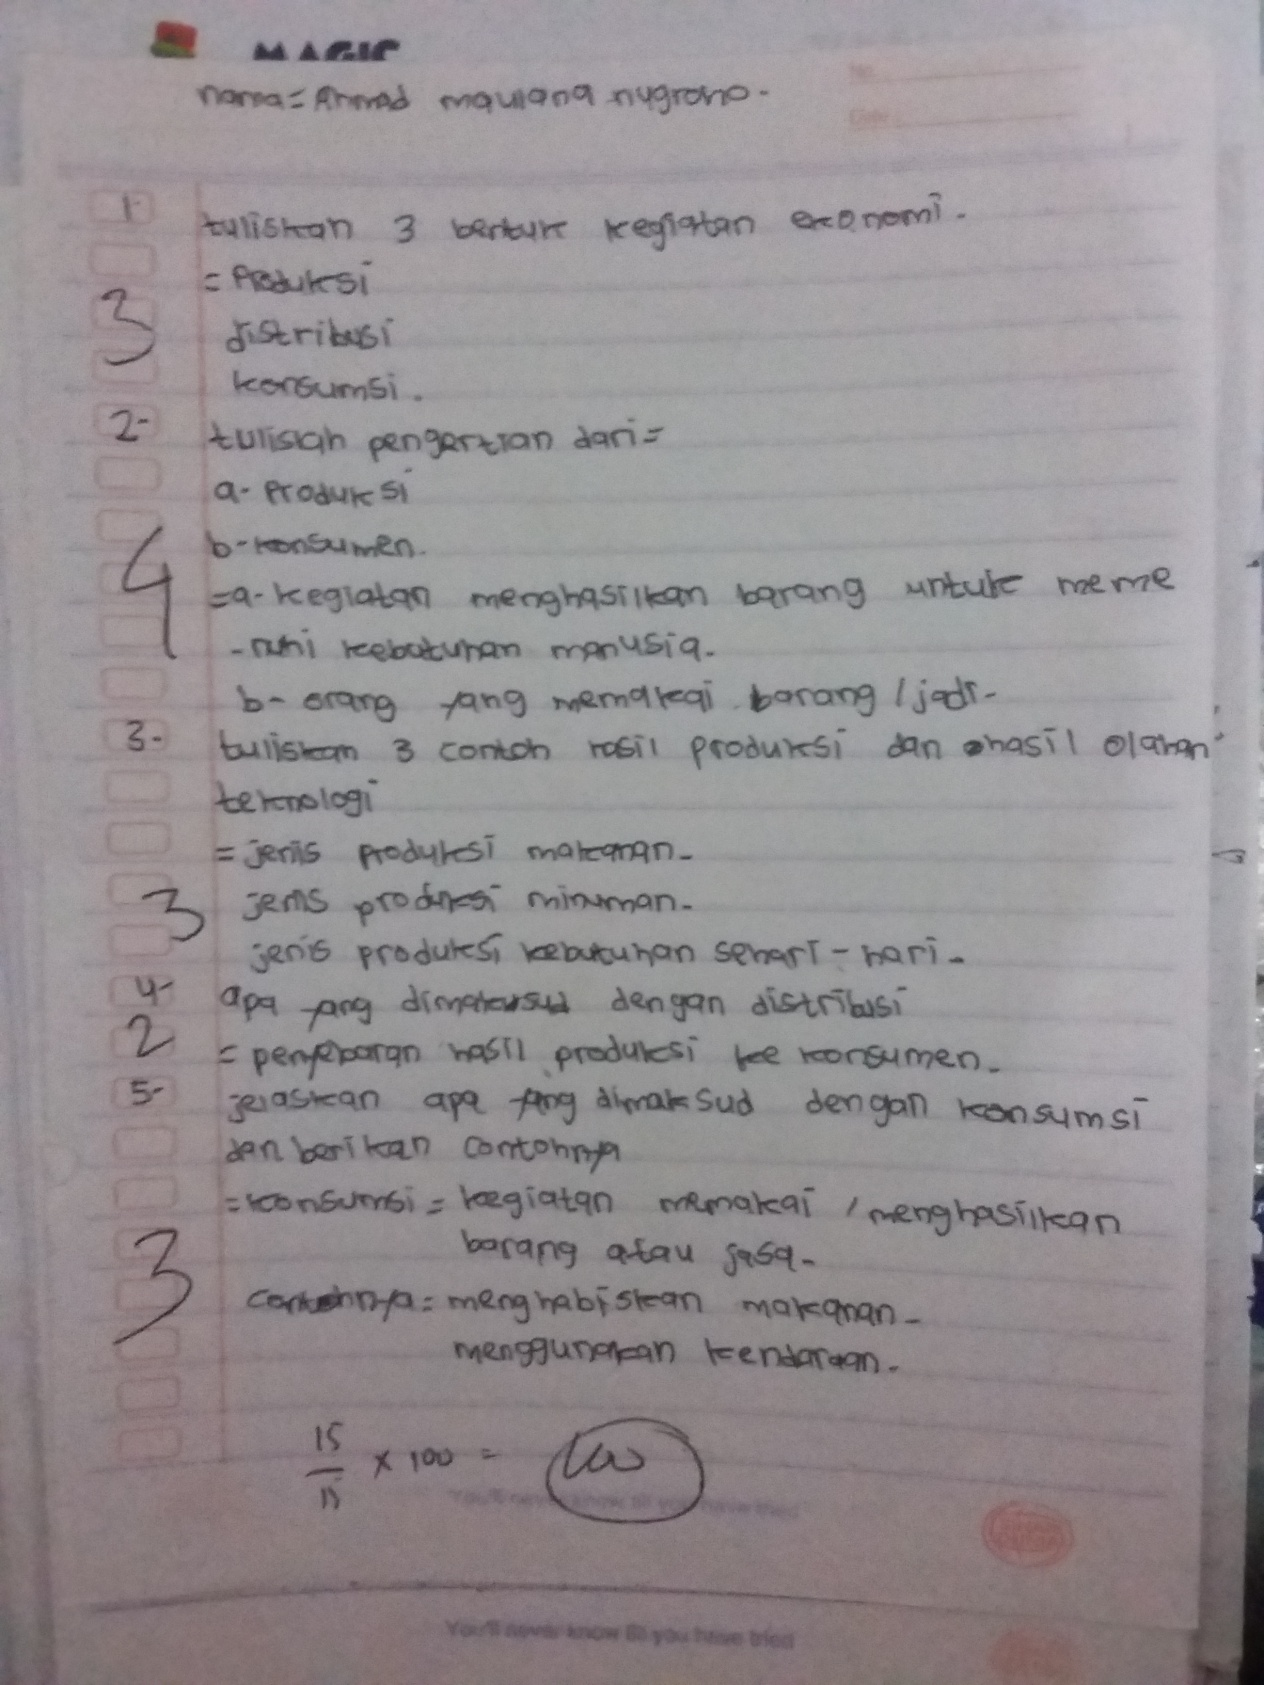 MAGIC
nama = Ahmad maulana nugroho.
1. tuliskan 3 bentuk kegiatan ekonomi.
= Produksi
3
distribusi
konsumsi.
2- tulislah pengertian dari =
a- Produksi
b- konsumen.
4
= a- kegiatan menghasilkan barang untuk meme
- nuhi kebutuhan manusia.
b- orang yang memakai barang / jadi-
3- tuliskan 3 contoh hasil produksi dan hasil olahan
teknologi
= jenis produksi makanan-
3 jenis produksi minuman-
jenis produksi kebutuhan sehari - hari -
4- apa yang dimaksud dengan distribusi
2 = penyebaran hasil produksi ke konsumen -
5- jelaskan apa yang dimaksud dengan konsumsi
dan berikan contohnya
= konsumsi = kegiatan memakai / menghasilkan
3 barang atau jasa -
contohnya = menghabiskan makanan -
menggunakan kendaraan -
15/15 x 100 = 100
You'll never know till you have tried
You'll never know till you have tried